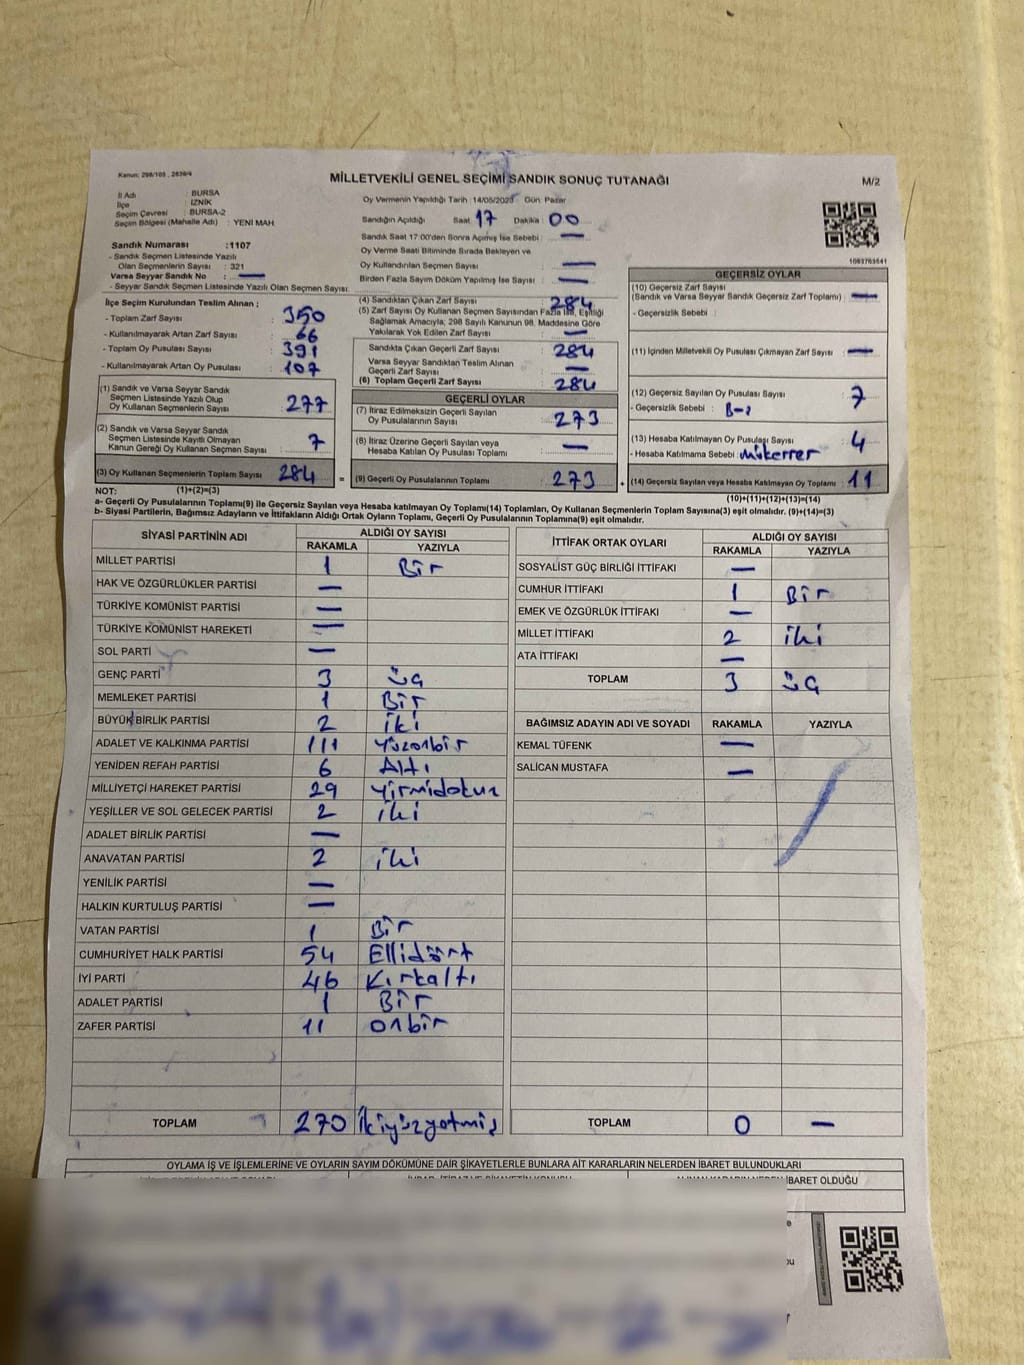 Kanun: 298/105 , 2839/4
MİLLETVEKİLİ GENEL SEÇİMİ SANDIK SONUÇ TUTANAĞI
M/2
İl Adı : BURSA
İlçe : İZNİK
Seçim Çevresi : BURSA-2
Seçim Bölgesi (Mahalle Adı) : YENİ MAH.
Oy Vermenin Yapıldığı Tarih :14/05/2023 Gün: Pazar
Sandığın Açıldığı Saat 17 Dakika 00
Sandık Saat 17:00'den Sonra Açılmış İse Sebebi : —
Oy Verme Saati Bitiminde Sırada Bekleyen ve
Oy Kullandırılan Seçmen Sayısı : —
Birden Fazla Sayım Döküm Yapılmış İse Sayısı : —
1083763541
Sandık Numarası :1107
- Sandık Seçmen Listesinde Yazılı
Olan Seçmenlerin Sayısı : 321
Varsa Seyyar Sandık No : —
- Seyyar Sandık Seçmen Listesinde Yazılı Olan Seçmen Sayısı:
İlçe Seçim Kurulundan Teslim Alınan ;
- Toplam Zarf Sayısı : 350
- Kullanılmayarak Artan Zarf Sayısı : 66
- Toplam Oy Pusulası Sayısı : 391
- Kullanılmayarak Artan Oy Pusulası : 107
(1) Sandık ve Varsa Seyyar Sandık
Seçmen Listesinde Yazılı Olup
Oy Kullanan Seçmenlerin Sayısı : 277
(2) Sandık ve Varsa Seyyar Sandık
Seçmen Listesinde Kayıtlı Olmayan
Kanun Gereği Oy Kullanan Seçmen Sayısı : 7
(3) Oy Kullanan Seçmenlerin Toplam Sayısı : 284
(4) Sandıktan Çıkan Zarf Sayısı : 284
(5) Zarf Sayısı Oy Kullanan Seçmen Sayısından Fazla İse, Eşitliği
Sağlamak Amacıyla, 298 Sayılı Kanunun 98. Maddesine Göre
Yakılarak Yok Edilen Zarf Sayısı : —
Sandıkta Çıkan Geçerli Zarf Sayısı : 284
Varsa Seyyar Sandıktan Teslim Alınan
Geçerli Zarf Sayısı : —
(6) Toplam Geçerli Zarf Sayısı : 284
GEÇERLİ OYLAR
(7) İtiraz Edilmeksizin Geçerli Sayılan
Oy Pusulalarının Sayısı : 273
(8) İtiraz Üzerine Geçerli Sayılan veya
Hesaba Katılan Oy Pusulası Toplamı : —
= (9) Geçerli Oy Pusulalarının Toplamı : 273 +
GEÇERSİZ OYLAR
(10) Geçersiz Zarf Sayısı
(Sandık ve Varsa Seyyar Sandık Geçersiz Zarf Toplamı) : —
- Geçersizlik Sebebi :
(11) İçinden Milletvekili Oy Pusulası Çıkmayan Zarf Sayısı : —
(12) Geçersiz Sayılan Oy Pusulası Sayısı : 7
- Geçersizlik Sebebi :
(13) Hesaba Katılmayan Oy Pusulası Sayısı : 4
- Hesaba Katılmama Sebebi : Mükerrer
(14) Geçersiz Sayılan veya Hesaba Katılmayan Oy Toplamı : 11
NOT: (1)+(2)=(3)
(10)+(11)+(12)+(13)=(14)
a- Geçerli Oy Pusulalarının Toplamı(9) ile Geçersiz Sayılan veya Hesaba katılmayan Oy Toplamı(14) Toplamları, Oy Kullanan Seçmenlerin Toplam Sayısına(3) eşit olmalıdır. (9)+(14)=(3)
b- Siyasi Partilerin, Bağımsız Adayların ve İttifakların Aldığı Ortak Oyların Toplamı, Geçerli Oy Pusulalarının Toplamına(9) eşit olmalıdır.
SİYASİ PARTİNİN ADI ALDIĞI OY SAYISI
RAKAMLA YAZIYLA
MİLLET PARTİSİ 1 Bir
HAK VE ÖZGÜRLÜKLER PARTİSİ —
TÜRKİYE KOMÜNİST PARTİSİ —
TÜRKİYE KOMÜNİST HAREKETİ —
SOL PARTİ —
GENÇ PARTİ 3 üç
MEMLEKET PARTİSİ 1 Bir
BÜYÜK BİRLİK PARTİSİ 2 iki
ADALET VE KALKINMA PARTİSİ 111 Yüzonbir
YENİDEN REFAH PARTİSİ 6 Altı
MİLLİYETÇİ HAREKET PARTİSİ 29 Yirmidokuz
YEŞİLLER VE SOL GELECEK PARTİSİ 2 iki
ADALET BİRLİK PARTİSİ —
ANAVATAN PARTİSİ 2 iki
YENİLİK PARTİSİ —
HALKIN KURTULUŞ PARTİSİ —
VATAN PARTİSİ 1 Bir
CUMHURİYET HALK PARTİSİ 54 Ellidört
İYİ PARTİ 46 Kırkaltı
ADALET PARTİSİ 1 Bir
ZAFER PARTİSİ 11 onbir
TOPLAM 270 İkiyüzyetmiş
İTTİFAK ORTAK OYLARI ALDIĞI OY SAYISI
RAKAMLA YAZIYLA
SOSYALİST GÜÇ BİRLİĞİ İTTİFAKI —
CUMHUR İTTİFAKI 1 Bir
EMEK VE ÖZGÜRLÜK İTTİFAKI —
MİLLET İTTİFAKI 2 iki
ATA İTTİFAKI —
TOPLAM 3 üç
BAĞIMSIZ ADAYIN ADI VE SOYADI RAKAMLA YAZIYLA
KEMAL TÜFENK —
SALİCAN MUSTAFA —
TOPLAM 0 —
OYLAMA İŞ VE İŞLEMLERİNE VE OYLARIN SAYIM DÖKÜMÜNE DAİR ŞİKAYETLERLE BUNLARA AİT KARARLARIN NELERDEN İBARET BULUNDUKLARI
İBARET OLDUĞU